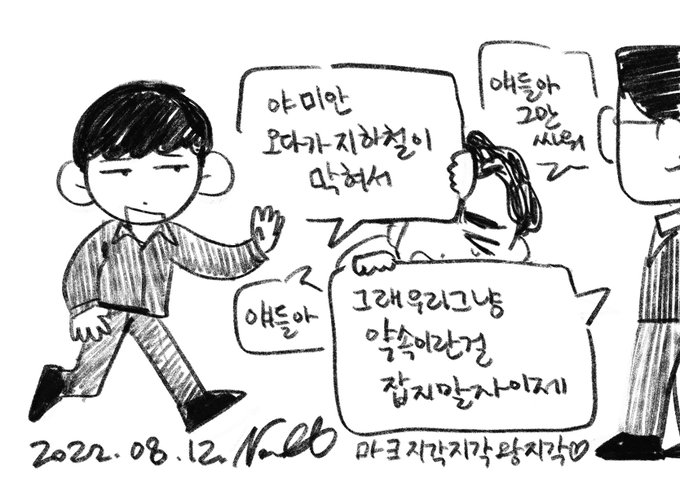 야 미안
오다가 지하철이
막혀서
얘들아
그만
싸워
얘들아
그래 우리 그냥
약속이란걸
잡지말자 이제
2022.08.12.
마크지각지각왕지각♡